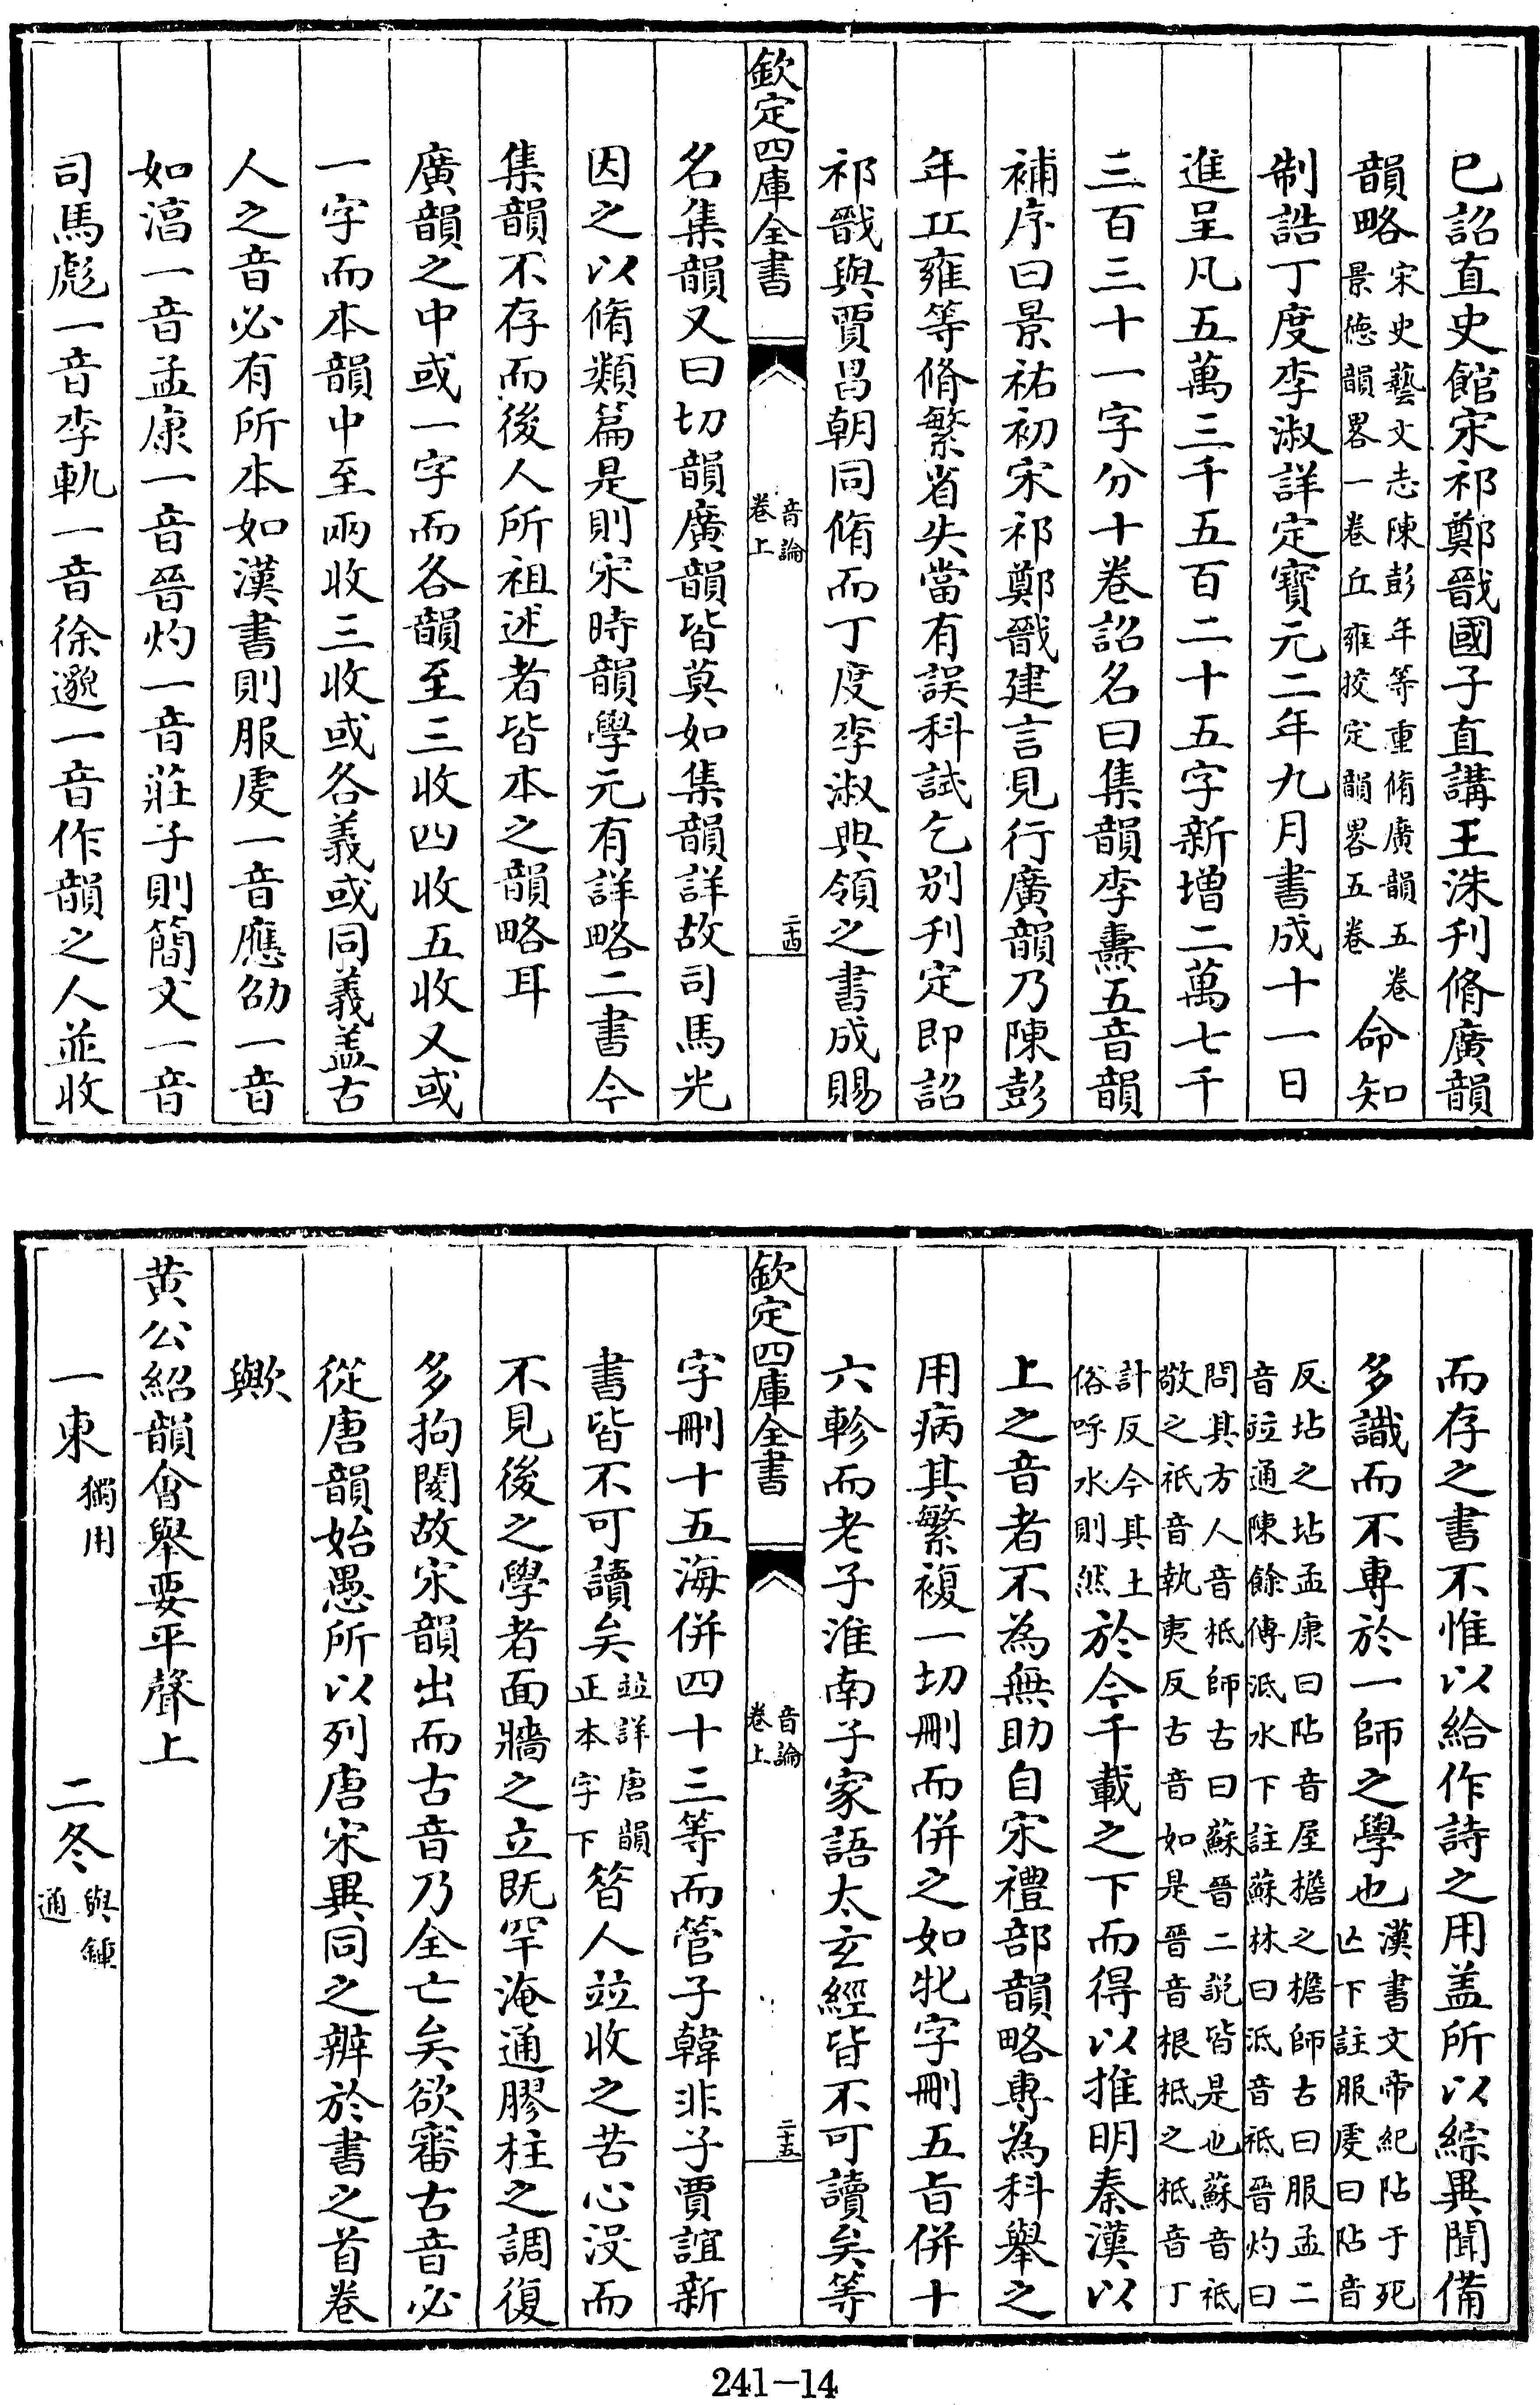 已詔直史館宋祁鄭戩國子直講王洙刋脩廣韻
韻略宋史藝文志陳彭年等重脩廣韻五卷景徳韻畧一卷丘雍挍定韻畧五卷命知
制誥丁度李淑詳定寳元二年九月書成十一日
進呈凡五萬三千五百二十五字新増二萬七千
三百三十一字分十卷詔名曰集韻李燾五音韻
補序曰景祐初宋祁鄭戩建言見行廣韻乃陳彭
年丘雍等脩繁省失當有誤科試乞别刋定即詔
祁戩與賈昌朝同脩而丁度李淑典領之書成賜
欽定四庫全書
音論
卷上
二十四
名集韻又曰切韻廣韻皆莫如集韻詳故司馬光
因之以脩類篇是則宋時韻學元有詳略二書今
集韻不存而後人所祖述者皆本之韻略耳
廣韻之中或一字而各韻至三收四收五收又或
一字而本韻中至兩收三收或各義或同義盖古
人之音必有所本如漢書則服䖍一音應劭一音
如淳一音孟康一音晉灼一音莊子則簡文一音
司馬彪一音李軌一音徐邈一音作韻之人並收
而存之書不惟以給作詩之用盖所以綜異聞備
多識而不專於一師之學也漢書文帝紀阽于死亾下註服䖍曰阽音
反坫之坫孟康曰阽音屋檐之檐師古曰服孟二音竝通陳餘傳泜水下註蘇林曰泜音祗晉灼曰
問其方人音柢師古曰蘇晉二説皆是也蘇音祗敬之祇音執夷反古音如是晉音根柢之柢音丁
計反今其土俗呼水則然於今千載之下而得以推明秦漢以
上之音者不為無助自宋禮部韻略専為科舉之
用病其繁複一切刪而併之如牝字刪五旨併十
六軫而老子淮南子家語太玄經皆不可讀矣等
欽定四庫全書
音論
卷上
二十五
字刪十五海併四十三等而管子韓非子賈誼新
書皆不可讀矣竝詳唐韻正本字下昝人竝收之苦心沒而
不見後之學者面牆之立既罕淹通膠柱之調復
多拘閡故宋韻出而古音乃全亡矣欲審古音必
從唐韻始愚所以列唐宋異同之辨於書之首卷
歟
黄公紹韻㑹舉要平聲上
一東獨用　二冬與鍾通
241-14